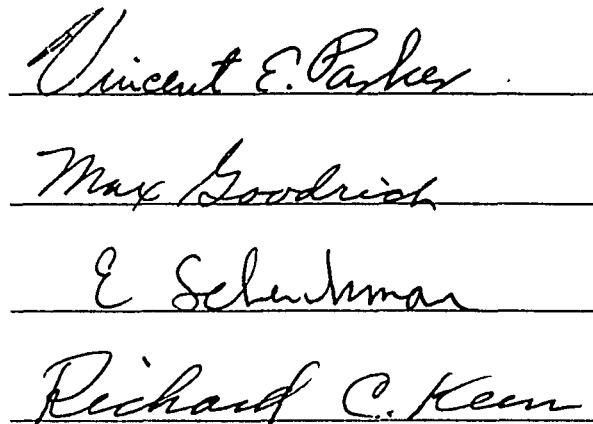 Vincent E. Parker
Max Goodrich
E Schenkman
Richard C. Keen